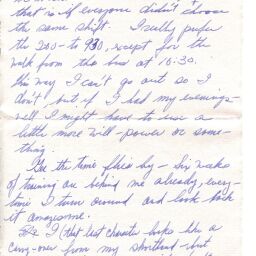 that is if everyone didn't choose
the same shift. I really prefer
the 200 - to 930, xcept for the
walk from the bus at 10:30.
this way I can't go out so I
don't, but if I had my evenings
well I might have to use a
little more will-power or some-
thing.
Gee the time flies by - Six weeks
of training are behind me already, every-
time I turn around and look back
it
I (that last character looks like a
carry-over from my shorthand - but